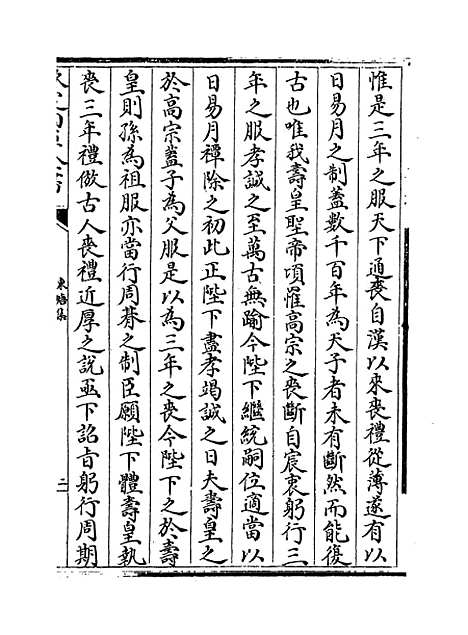 惟是三年之服天下通喪自漢以來喪禮從薄遂有以
日易月之制蓋數千百年為天子者未有斷然而能復
古也唯我壽皇聖帝頃罹高宗之喪斷自宸衷躬行三
年之服孝誠之至萬古無踰今陛下繼統嗣位適當以
日易月禫除之初此正陛下盡孝竭誠之日夫壽皇之
於高宗蓋子為父服是以為三年之喪今陛下之於壽
皇則孫為祖服亦當行周朞之制臣願陛下體壽皇執
喪三年禮倣古人喪禮近厚之說亟下詔旨躬行周期
東塘集
二